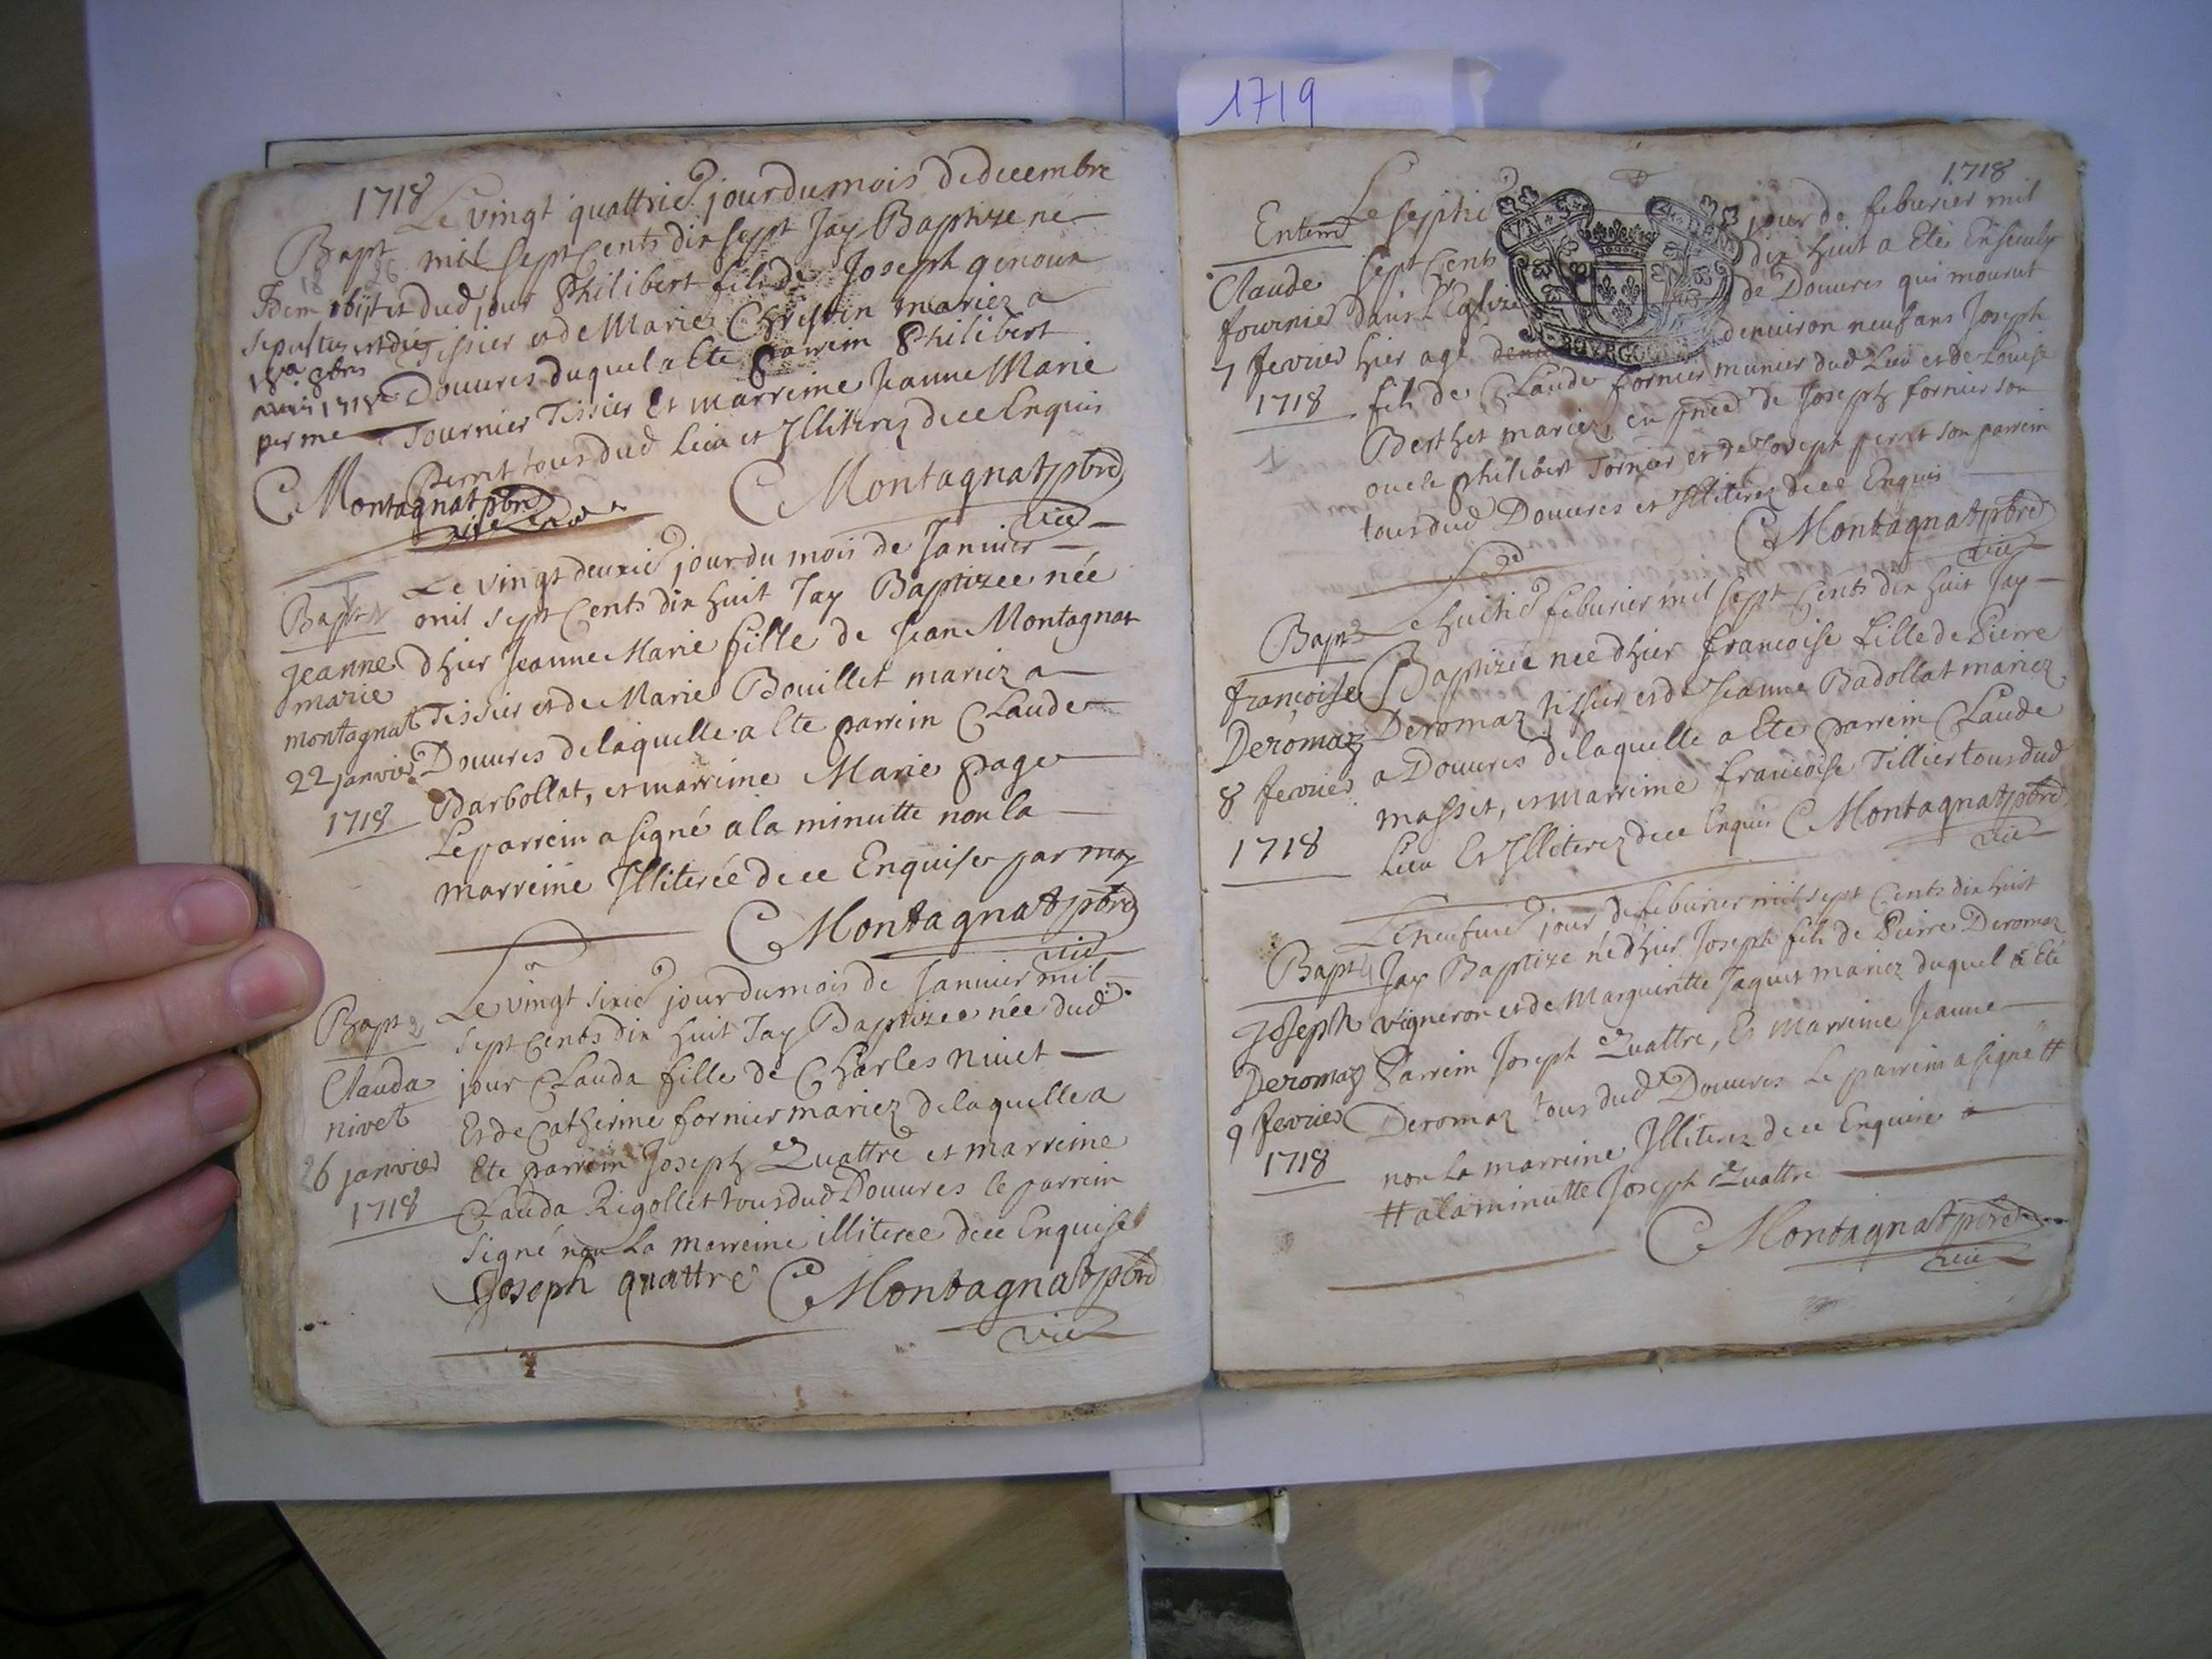 1719
1718
Le vingt quattrie jour du mois de decembre
Bapt mil sept Cents dix sept Jay Baptize né
Idem obijt et dud jour Philibert fils de Joseph genoux
sepultus est die Tissier et de Marie Christin mariez a
18a 8bris
Douures duquel a Ete parrein Philibert
anni 1718
Tournier Tissier Et marreine Jeanne Marie
per me
Perret tous dud lieu et Illiterez de ce Enquis
C Montagnat pbre
C Montagnat pbre
vic
Le vingt deuxie jour du mois de Janvier
Bapt 1 mil sept Cents dix huit Jay Baptizee née
jeanne dhier Jeanne Marie fille de Jean Montagnat
marie
montagnat Tissier et de Marie Bouillet mariez a
22 janvier Douures de laquelle a Ete parrein Claude
1718 Barbollat, et marreine Marie page
Le parrein a signé a la minutte non la
marreine Illiterée de ce Enquise par moy
C Montagnat pbre
vic
Le vingt sixie jour du mois de Janvier mil
Bapt 2 sept Cents dix huit Jay Baptizee née dud
Clauda jour Clauda fille de Charles nivet
nivet Et de Catherine fornier mariez de laquelle a
26 janvier Ete parrein Joseph Quattre et marreine
1718 Clauda Rigollet tous dud Douures le parrein
signé non la marreine illiteree de ce Enquise
Joseph quattre C Montagnat pbre
vic
1718
Enterrt Le septie jour de feburier mil
Claude sept Cents dix huit a Ete Enseuely
fournier dans L'Eglize de Douures qui mourut
7 fevrier hier agé denviron neuf ans Joseph
1718 fils de Claude fornier munier dud Lieu et de Louise
1 Berthet mariez, en pnce de Joseph fornier son
oncle philibert Tornier et de Joseph perret son parrein
tous dud Douures et Illiterez de ce Enquis
C Montagnat pbre
vic
Bapt 3 Le huitie feburier mil sept Cents dix huit Jay
françoise Baptizee nee dhier francoise fille de Pierre
Deromaz Deromaz tissier et de Jeanne Badollat mariez
8 fevrier a Douures de laquelle a Ete parrein Claude
1718 massit, et marreine francoise Tillier tous dud
Lieu Et Illiterez de ce Enquis C Montagnat pbre
vic
Le neufvie jour de feburier mil sept Cents dix huit
Bapt 4 Jay Baptize né dhier Joseph fils de Pierre Deromaz
Joseph vigneron et de Margueritte Jaquet mariez duquel a Eté
Deromaz Parrein Joseph Quattre, Et Marreine Jeanne
9 fevrier Deromaz tous dud Douures Le parrein a signe #
1718 non la marreine Illiterez de ce Enquise
# a la minutte Joseph Quattre
C Montagnat pbre
vic